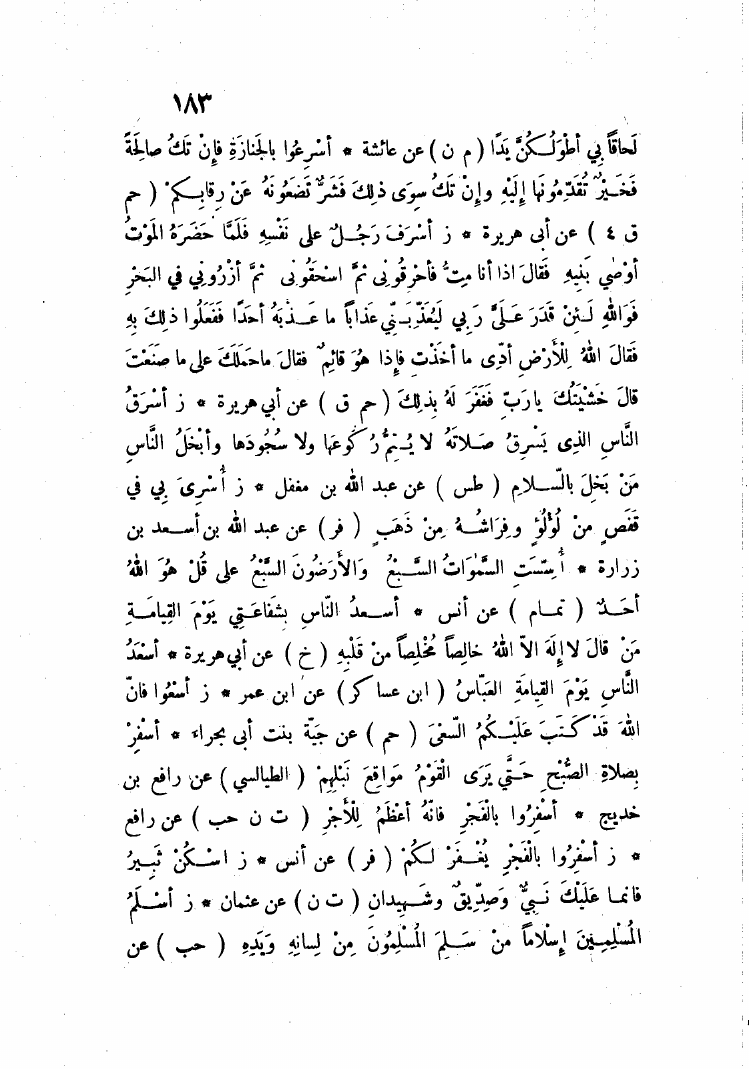 ١٨٣
لَحَاقاً بِي أَطْوَلُـكُنَّ يَدًا ( م ن ) عن عائشة * أَسْرِعُوا بالجَنازَةِ فإِنْ تَكُ صالِحَةً
فَخَـيْرٌ تُقَدِّمُونَها إِلَيْهِ وإِنْ تَكُ سِوَى ذلِكَ فَشَرٌّ تَضَعُونَهُ عَنْ رِقابِـكمْ ( حم
ق ٤ ) عن أبى هريرة * ز أَسْرَفَ رَجُـلٌ على نَفْسِهِ فَلَمَّا حَضَرَهُ المَوْتُ
أَوْصٰي بَنِيهِ فَقالَ اذا أنا مِتُّ فأَحْرِقُونِى ثمَّ اسْحَقُونِى ثمَّ أَزْرُونِي في البَحْرِ
فَوَاللهِ لَـئِنْ قَدَرَ عَـلَيَّ رَبِي لَيُعَذِّبَـنِّي عَذاباً ما عَـذَّبَهُ أحَدًا فَفَعَلُوا ذلِكَ بِهِ
فَقالَ اللهُ لِلْأَرْضِ أَدِّى ما أخَذْتِ فإِذا هُوَ قائِمٌ فقالَ ماحَمَلَكَ على ما صَنَعْتَ
قالَ خَشْيَتُكَ يارَبِّ فَغَفَرَ لَهُ بِذلِكَ ( حم ق ) عن أبي هريرة * ز أَسْرَقُ
النَّاسِ الذِى يَسْرِقُ صَـلاتَهُ لا يُـتِمُّ رُكُوعَها ولا سُجُودَها وأَبْخَلُ النَّاسِ
مَنْ بَخِلَ بالسَّـلامِ ( طس ) عن عبد الله بن مغفل * ز أُسْرِىَ بِي في
قَفَصٍ مِنْ لُؤْلُؤٍ وفِرَاشُـهُ مِنْ ذَهَبٍ ( فر ) عن عبد الله بن أسـعد بن
زرارة * أُسِّسَتِ السَّمٰوَاتُ السَّـبْعُ وَالأَرَضُونَ السَّبْعُ على قُلْ هُوَ اللهُ
أَحَـدٌ ( تمـام ) عن أنس * أَسـعَدُ النَّاسِ بِشَفاعَـتِي يَوْمَ القِيامَـةِ
مَنْ قالَ لاإِلَهَ الاّ اللهُ خالِصاً مُخْلِصاً مِنْ قَلْبِهِ ( خ ) عن أبي هريرة * أَسْعَدُ
النَّاسِ يَوْمَ القِيامَةِ العَبّاسُ ( ابن عساكر ) عن ابن عمر * ز أَسْعُوا فانَّ
اللهَ قَدْ كَـتَبَ عَلَيْـكُمُ السَّعْىَ ( حم ) عن حبة بنت أبى بحراء * أَسْفِرْ
بِصلاةِ الصُّبْحِ حَـتَّي يَرَى الْقَوْمُ مَوَاقِعَ نَبْلِهِمْ ( الطيالسي ) عن رافع بن
خديج * أَسْفِرُوا بالْفَجْرِ فانّهُ أعْظَمُ لِلْأَجْرِ ( ت ن حب ) عن رافع
* ز أَسْفِرُوا بالْفَجْرِ يُغْـفَرْ لـكُمْ ( فر ) عن أنس * ز اسْـكُنْ ثَبِيرُ
فانما عَلَيْكَ نَـبِيٌّ وَصِدِّيقٌ وشَـهِيدانِ ( ت ن ) عن عثمان * ز أَسْـلَمُ
المُسْلِمِـينَ إِسْلاماً مَنْ سَـلِمَ المُسْلِمُونَ مِنْ لِسانِهِ وَيَدِهِ ( حب ) عن